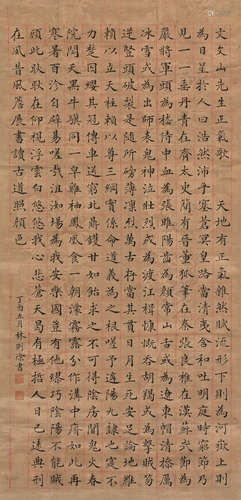 文文山先生正氣歌 天地有正氣雜然賦流形下則為河嶽上則
為日星於人曰浩然沛乎塞蒼冥皇路當清夷含和吐明庭時窮節乃
見一一垂丹青在齊太史簡在晉董狐筆在秦張良椎在漢蘇武節為
嚴將軍頭為嵇侍中血為張睢陽齒為顏常山舌或為遼東帽清操厲
冰雪或為出師表鬼神泣壯烈或為渡江楫慷慨吞胡羯或為擊賊笏
逆豎頭破裂是氣所磅礴凜烈萬古存當其貫日月生死安足論地維
賴以立天柱賴以尊三綱實係命道義為之根嗟予遘陽九隸也實不
力楚囚纓其冠傳車送窮北鼎鑊甘如飴求之不可得陰房闃鬼火春
院閟天黑牛驥同一皁雞棲鳳凰食一朝濛霧露分作溝中瘠如此再
寒暑百沴自辟易嗟哉沮洳場為我安樂國豈有他繆巧陰陽不能賊
顧此耿耿在仰視浮雲白悠悠我心悲蒼天曷有極哲人日已遠典刑
在夙昔風簷展書讀古道照顏色
丁酉五月林則徐書